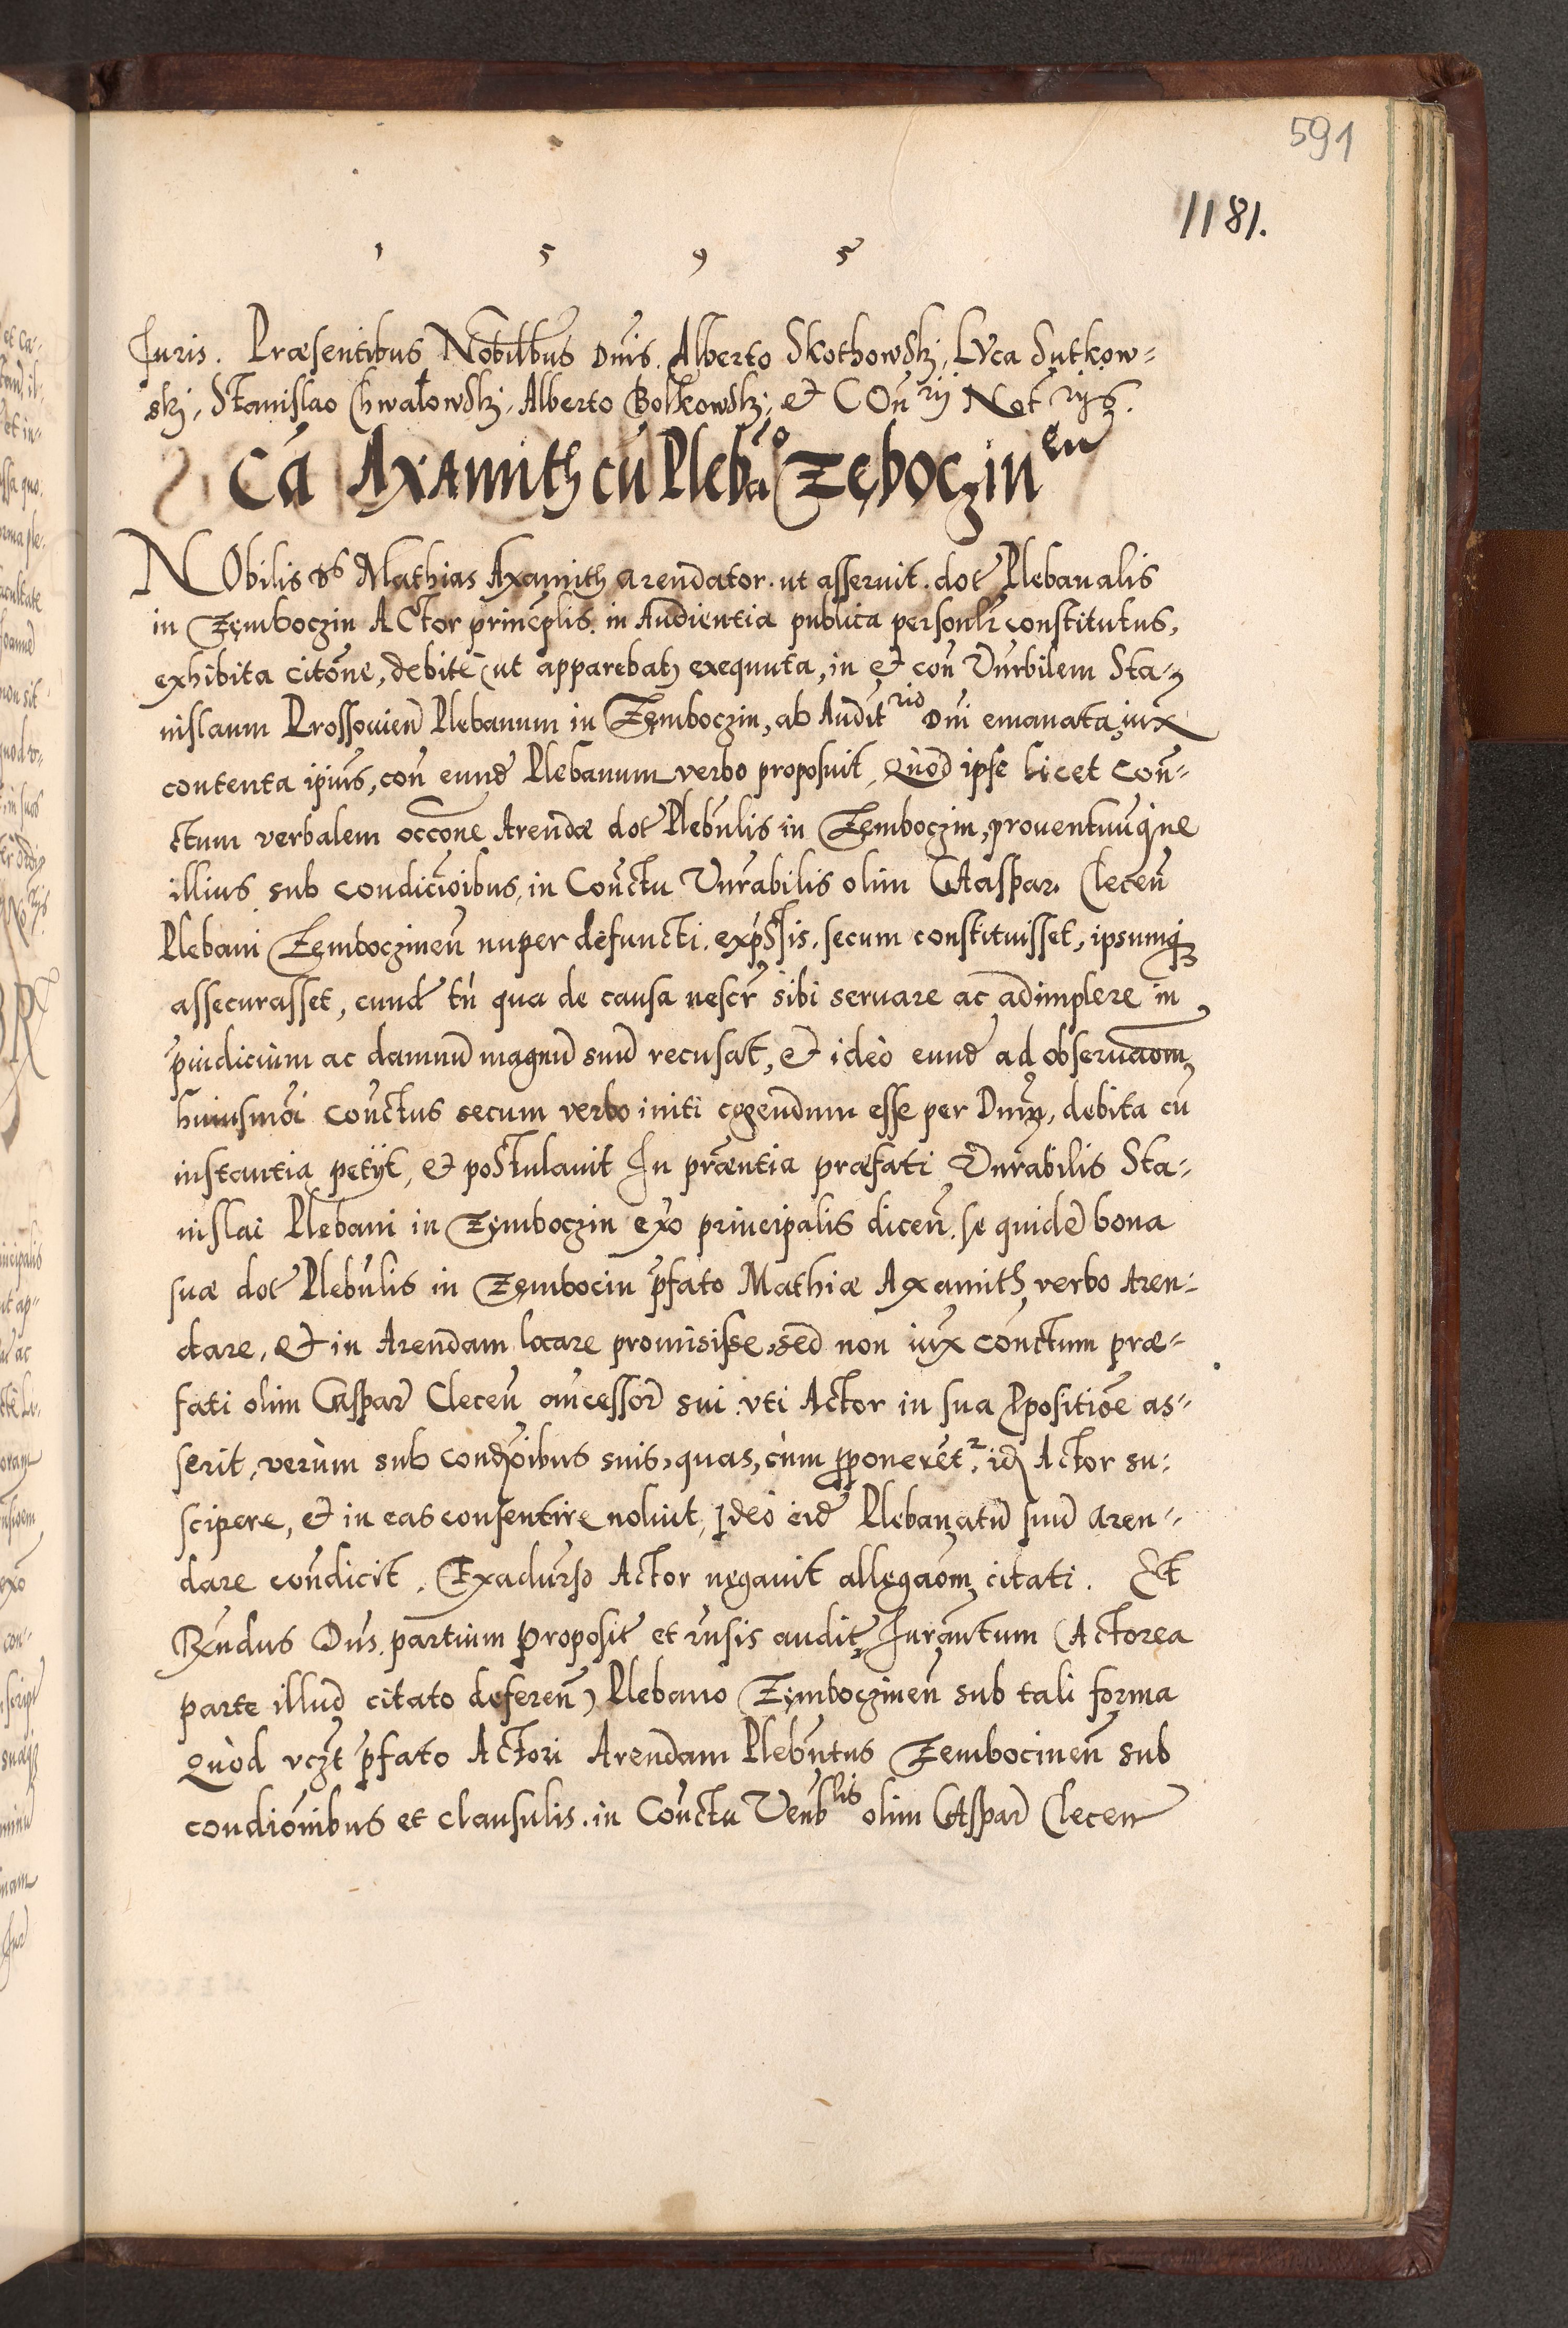 591
1181.
1 5 9 5
Juris. Præsentibus Nobilibus Dnis. Alberto Skothowskj, Lvca Sutkow=
skj, Stanislao Chwałowskj, Alberto Bolkowskj, et COn rij Not rijs.
Cā Axamith cū Plebāo Zęboczin en
NObilis ds Mathias Axamith arendator. ut asseruit. dot Plebanalis
in Zęmboczin ACtor princplis. in Audientia publica personlr constitutus,
exhibita citone, debite (ut apparebat) exequuta, in et con Vnrbilem Sta-
nislaum Prossouien Plebanum in Zęmboczin, ab Audit rio Dni emanata, iux
contenta ipius, con eund Plebanum verbo proposuit, Quod ipse licet con-
ctum verbalem occone Arendæ dot Plebnlis in Zęmboczin, prouentuuqne
illius sub condicioibus, in Conctu Vnrabilis olim GAaspar. Clecen
Plebani Zęmboczinen nuper defuncti. exprssis, secum constituisset, ipsumq
assecurasset, eund tn qua de causa nescr sibi seruare ac adimplere in
piudicium ac damnū magnū suū recusat, et ideò eund ad obseruaom,
huiusmoi conctus secum verbo initi cogendum esse per Dnm, debita cū
instantia petijt, et postulauit In præntia præfati Vnrabilis Sta-
nislai Plebani in Zęmboczin exo principalis dicen. se quidē bona
suæ dot Plebnlis in Zęmbocin pfato Mathiæ Axamith verbo Aren-
dare, et in Arendam locare promisisse, sed non iux conctum præ-
fati olim GAspar Clecen ancessor sui. vti Actor in sua Ppositioe as-
serit, verùm sub condxoibus suis, quas, cùm pponeret, id Actor su-
scipere, et in eas consentire noluit, Ideò eid Plebanatū suū aren-
dare condicit. Exaduerso Actor negauit allegaom citati. Et
Rxndus Dns. partium proposit et rnsis audit, Juramtum (Actorea
parte illud citato deferen) Plebano Zęmboczinen sub tali forma
Quòd vczt pfato Actori Arendam Plebntus Zembocinen sub
condionibus et clausulis. in Conctu Venb lis olim GAspar Clecen